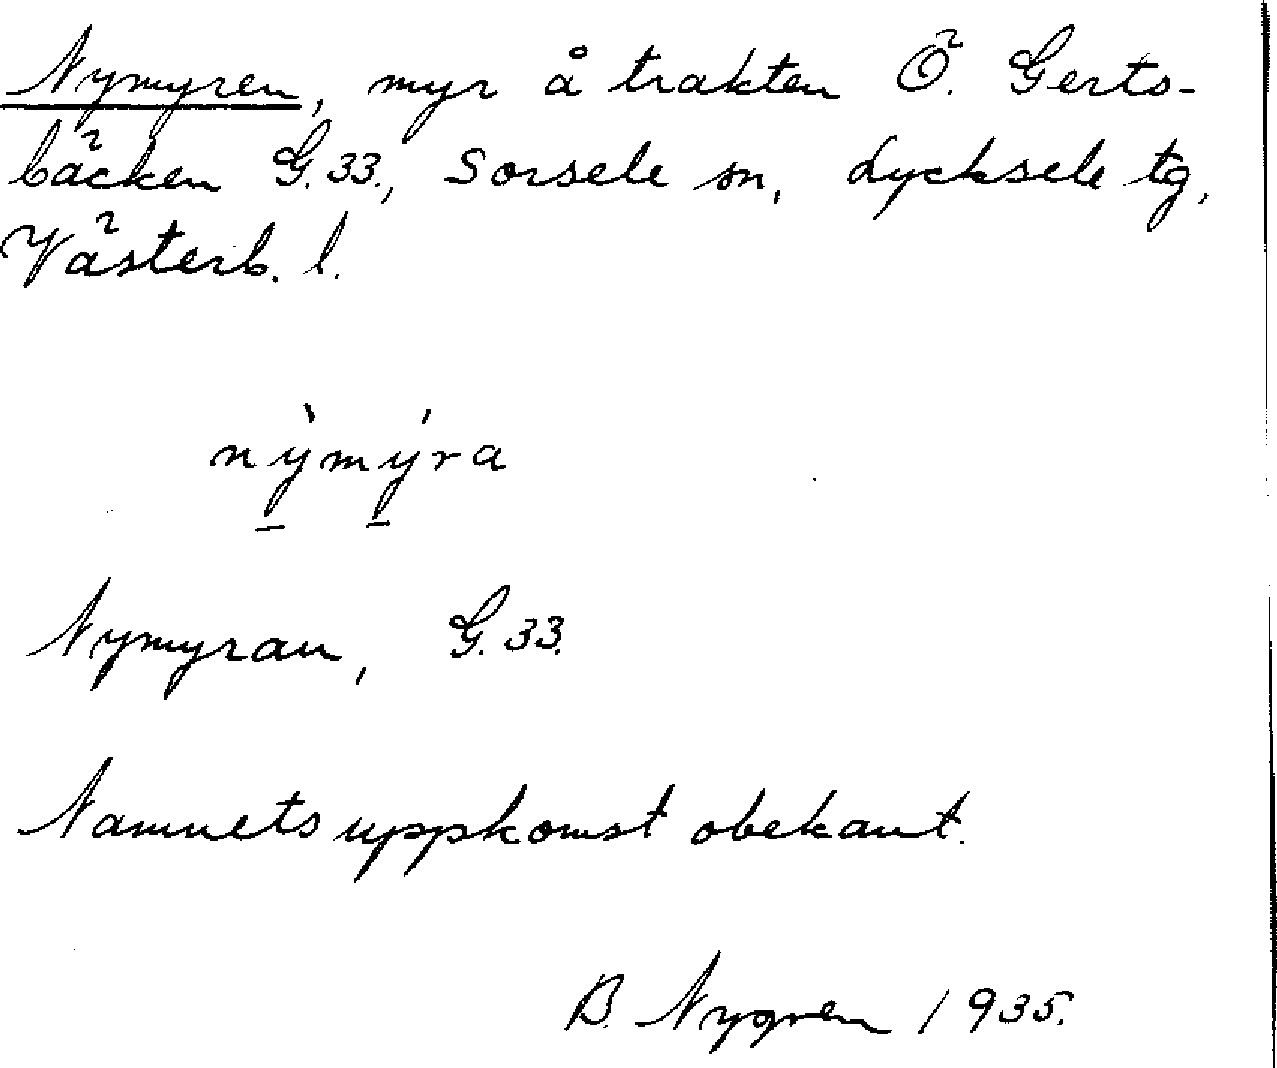 Nymyren, myr å trakten Ö. Gerts-
bäcken G.33., Sorsele sn, Lycksele tg,
Västerb. l.
nỳmýra
Nymyran, G.33.
Namnets uppkomst obekant.
B. Nygren 1935.